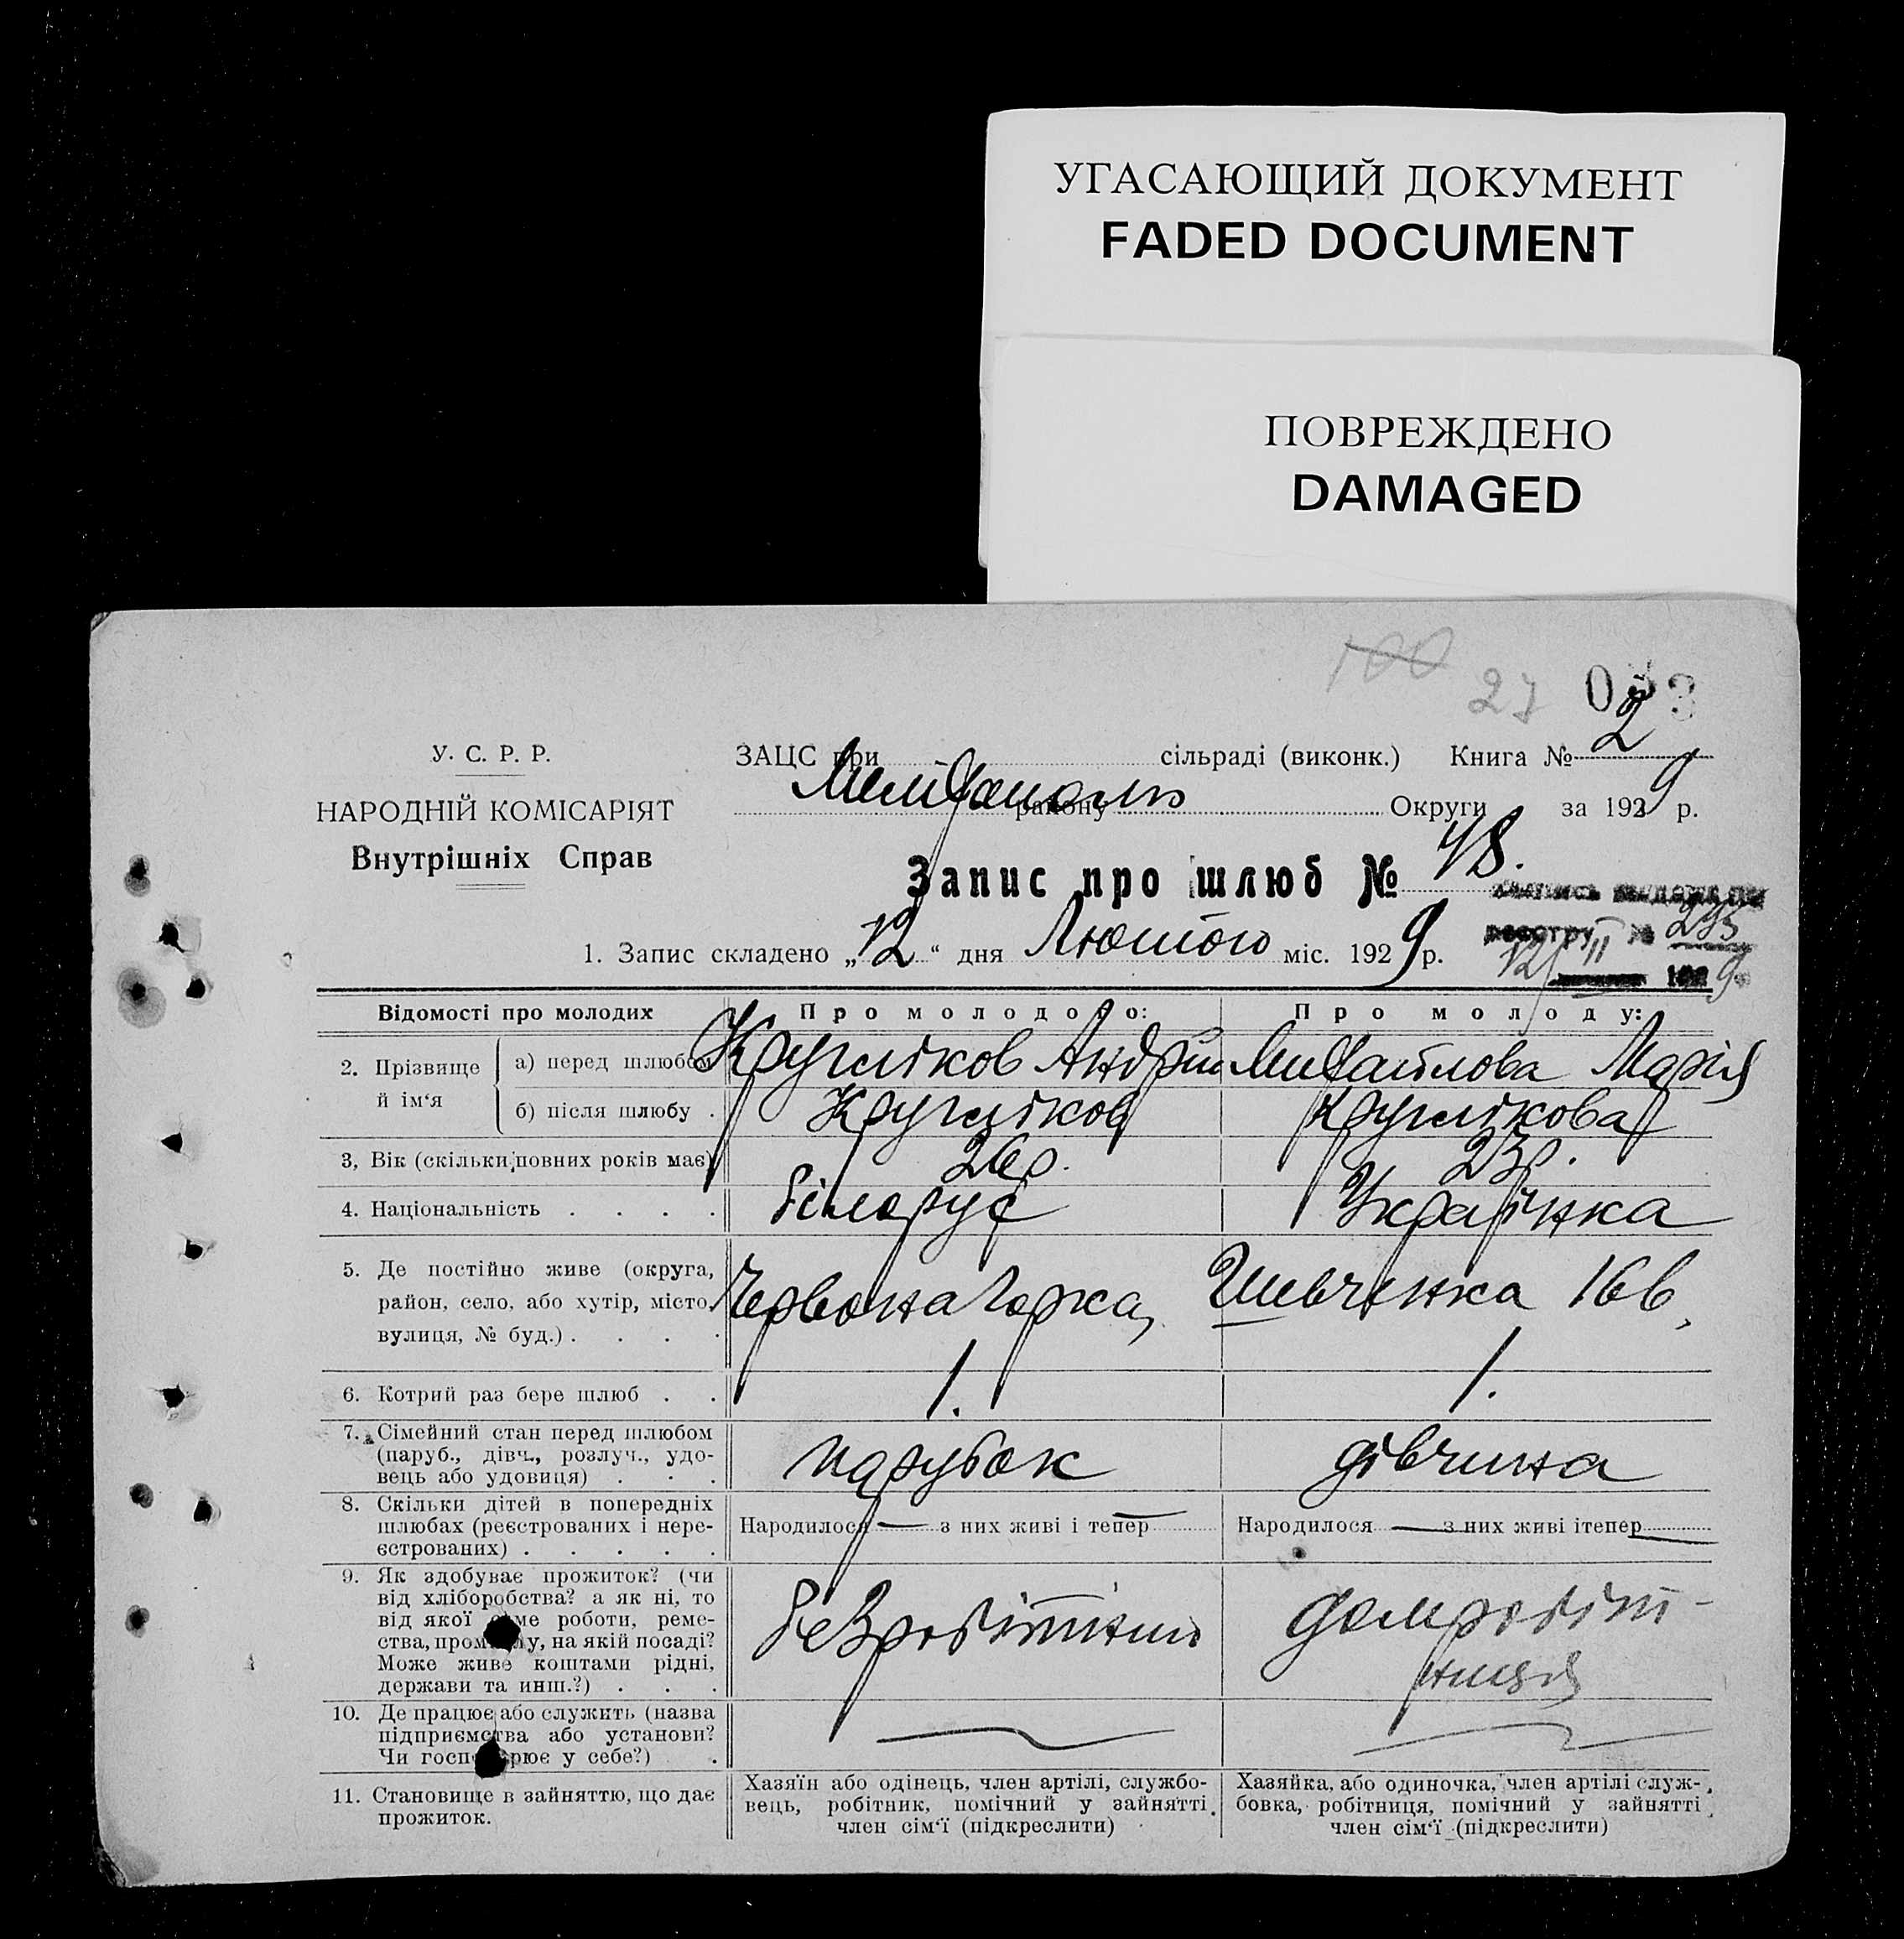 УГАСАЮЩИЙ ДОКУМЕНТ
FADED DOCUMENT
ПОВРЕЖДЕНО
DAMAGED
100
27
У. С. Р. Р.
НАРОДНІЙ КОМІСАРІЯТ
Внутрішніх Справ
ЗАЦС при сільраді (виконк.) Книга № 2
району Округи за 1929 р.
Запис про шлюб № 48.
реєстру № 235
12/II 1929
1. Запис складено „12“ дня Лютого міс. 1929 р.
Відомості про молодих Про молодого: Про молоду:
2. Прізвище й ім‘я
а) перед шлюбом Кругліков Андрій Михайлова Марія
б) після шлюбу . Кругліков Круглікова
3, Вік (скільки повних років має) 26 р. 23 р.
4. Національність . . . . Білорус Українка
5. Де постійно живе (округа,
район, село, або хутір, місто,
вулиця, № буд.) . . . .
Червона Горка, Шевченка 16 в,
6. Котрий раз бере шлюб . . 1. 1.
7. Сімейний стан перед шлюбом
(паруб., дівч., розлуч., удо-
вець або удовиця) . . .
парубок дівчина
8. Скільки дітей в попередніх
шлюбах (реєстрованих і нере-
єстрованих) . . . . .
Народилося — з них живі і тепер — Народилося — з них живі ітепер —
9. Як здобуває прожиток? (чи
від хліборобства? а як ні, то
від якої саме роботи, реме-
ства, промислу, на якій посаді?
Може живе коштами рідні,
держави та инш.?) . . .
Безробітний домробіт-
ниця
10. Де працює або служить (назва
підприємства або установи?
Чи господарює у себе?) .
11. Становище в зайняттю, що дає
прожиток.
Хазяїн або одінець, член артілі, службо-
вець, робітник, помічний у зайнятті,
член сім‘ї (підкреслити)
Хазяйка, або одиночка, член артілі служ-
бовка, робітниця, помічний у зайнятті
член сім‘ї (підкреслити)